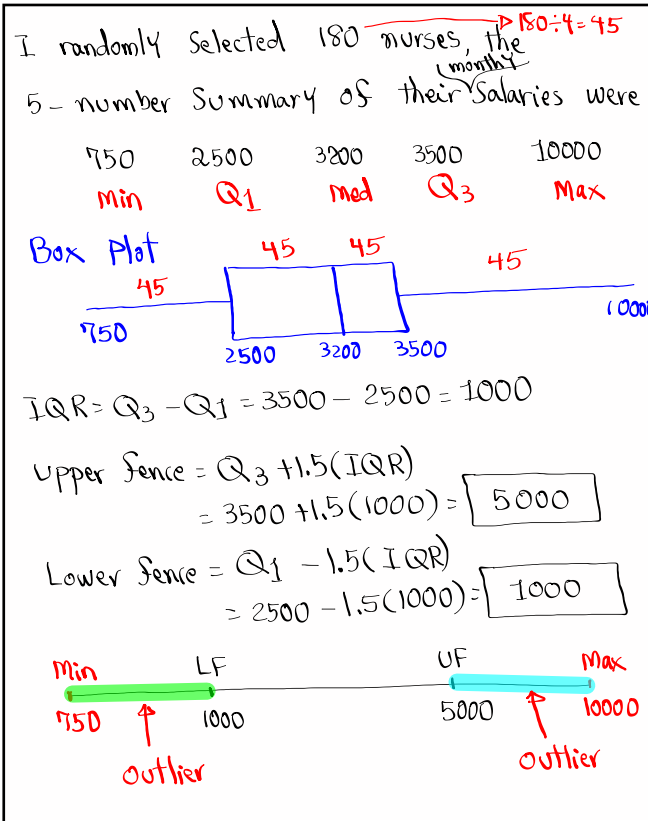 I randomly Selected 180 nurses, the → 180÷4=45
(monthly)
5- number Summary of their Salaries were
750 2500 3200 3500 10000
Min Q1 Med Q3 Max
Box Plot
45 45 45 45
750 2500 3200 3500 10000
IQR = Q3 - Q1 = 3500 - 2500 = 1000
Upper fence = Q3 +1.5(IQR)
= 3500 +1.5(1000) = 5000
Lower fence = Q1 -1.5(IQR)
= 2500 -1.5(1000) = 1000
Min LF UF Max
750 1000 5000 10000
Outlier Outlier